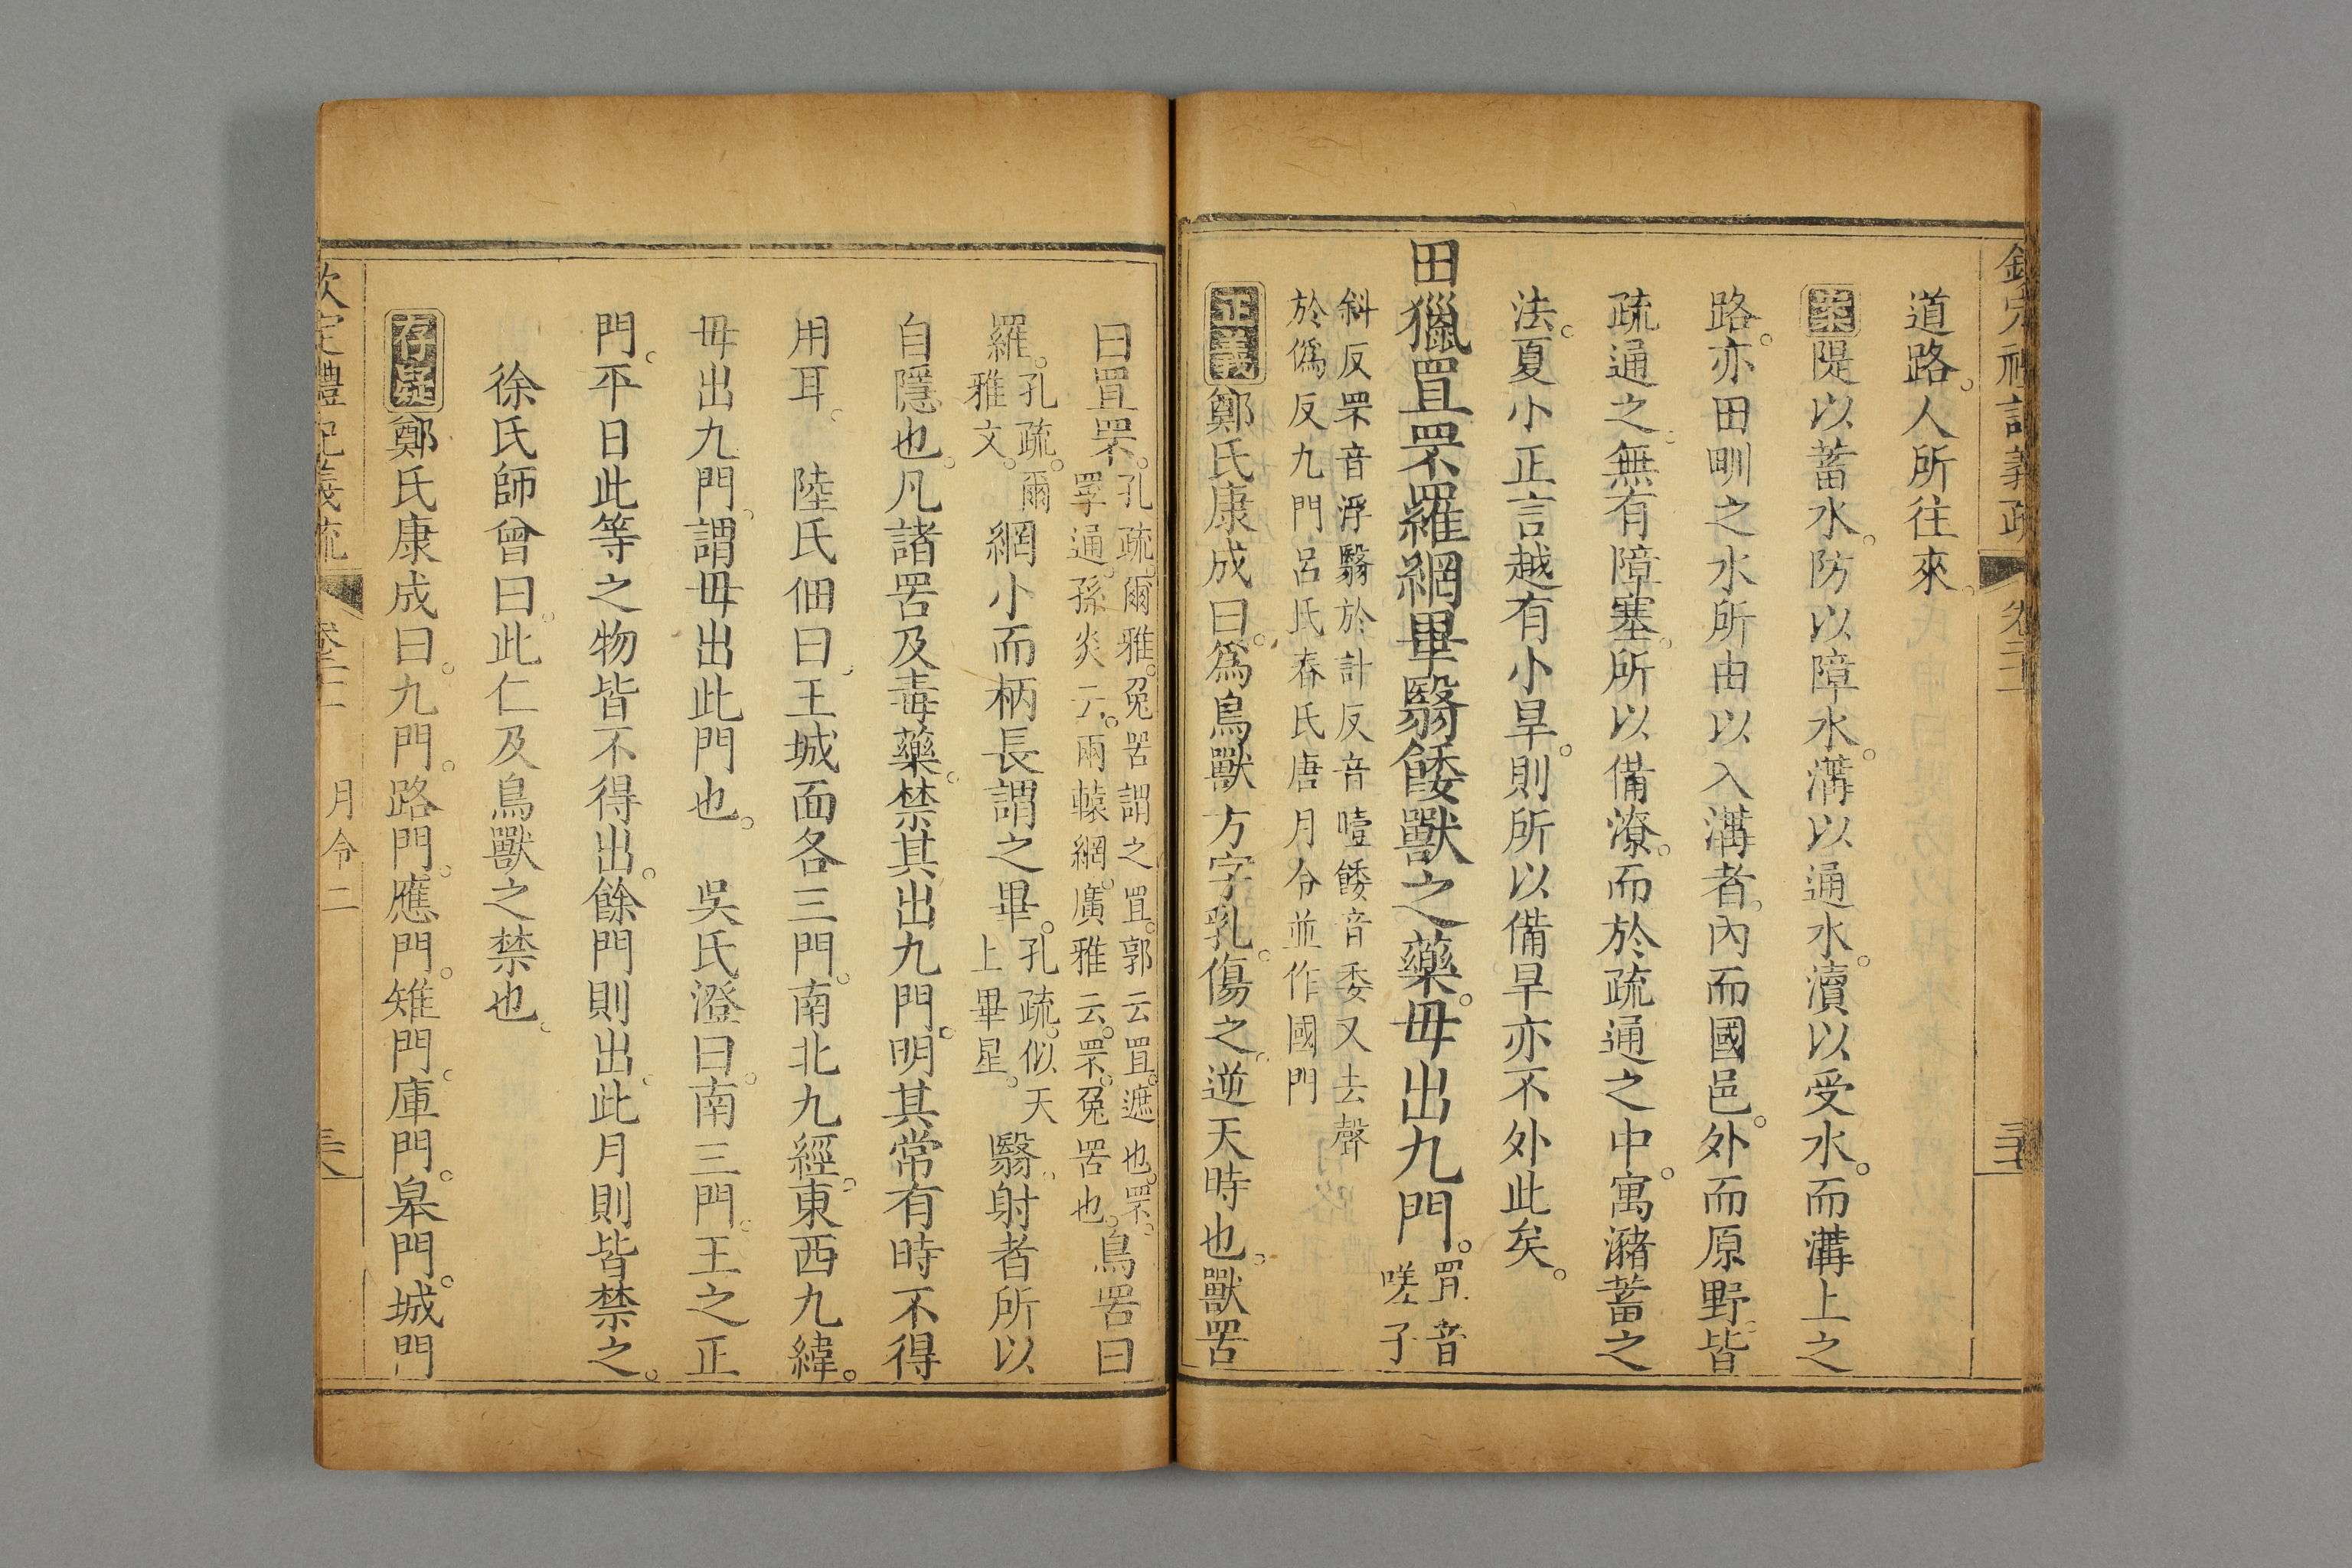 欽定禮記義疏 卷二十二 
道路。人所往來。
案隄以蓄水。防以障水。溝以通水。瀆以受水。而溝上之
路。亦田甽之水所由以入溝者。內而國邑。外而原野。皆
疏通之。無有障塞。所以備潦。而於疏通之中。寓瀦蓄之
法。夏小正言越有小旱。則所以備旱亦不外此矣。
田獵罝罘羅網畢翳餧獸之藥。毋出九門。罝音嗟子
斜反罘音浮翳於計反音噎餧音委又去聲
於僞反九門呂氏春氏唐月令並作國門
正義鄭氏康成曰。爲鳥獸方孚乳。傷之。逆天時也。獸罟
曰罝罘。孔疏。爾雅。兔罟謂之罝。郭云罝。遮也。罘。
罦通。孫炎云。兩轅網。廣雅云。罘。兔罟也。鳥罟曰
羅。孔疏。爾雅文。網小而柄長謂之畢。孔疏。似天上畢星。翳。射者所以
自隱也。凡諸罟及毒藥。禁其出九門。明其常有時不得
用耳。 陸氏佃曰。王城面各三門。南北九經。東西九緯。
毋出九門。謂毋出此門也。 吳氏澄曰。南三門。王之正
門。平日此等之物皆不得出。餘門則出。此月則皆禁之。
徐氏師曾曰。此仁及鳥獸之禁也。
存疑鄭氏康成曰。九門。路門。應門。雉門。庫門。皋門。城門
欽定禮記義疏 卷二十二 月令二